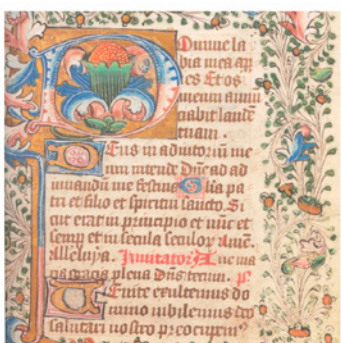 Domine la
bia mea ap
ies Et os
meum annū
ciabit laudē
tuam.
Deus in adiutoriū me
um intende Dñe ad ad
iuuandū me festina Glia pa
tri et filio et spiritui sancto. Si
cut erat in principio et nūc et
semp et in secula seculoꝝ amē.
Alleluya. Inuitato: Aue ma
ria gracia plena Dñs tecum. p̄
Uenite exultemus do
mino iubilemus deo
salutari nostro p̄occupem⁹